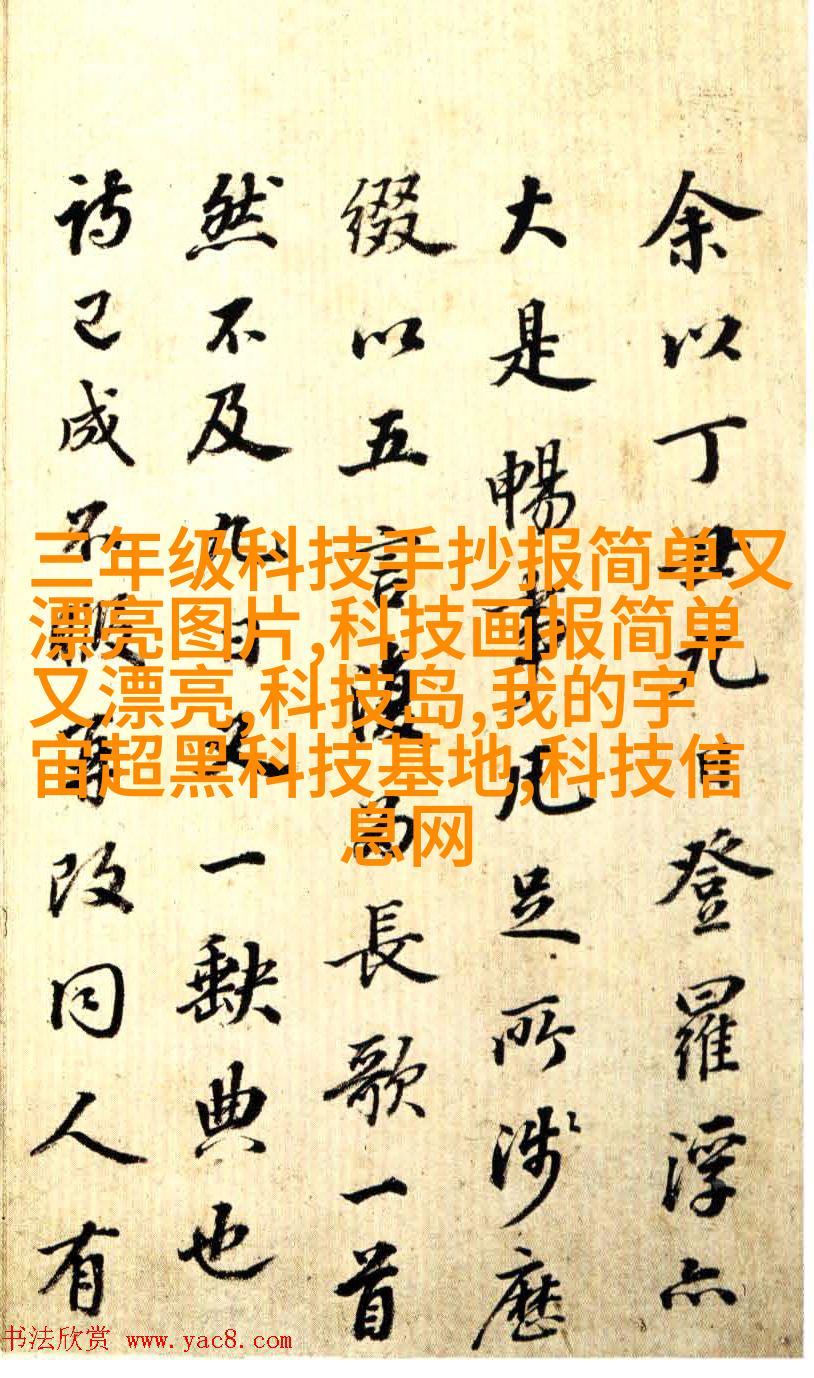 余以丁丑日登羅浮亦
大是暢事凡足所涉歷
綴以五言復為長歌一首
然不及九日又一缺典也
詩已成不改同人有
三年级科技手抄报简单又
漂亮图片,科技画报简单
又漂亮,科技岛,我的宇
宙超黑科技基地,科技信
息网
书法欣赏 www.yac8.com